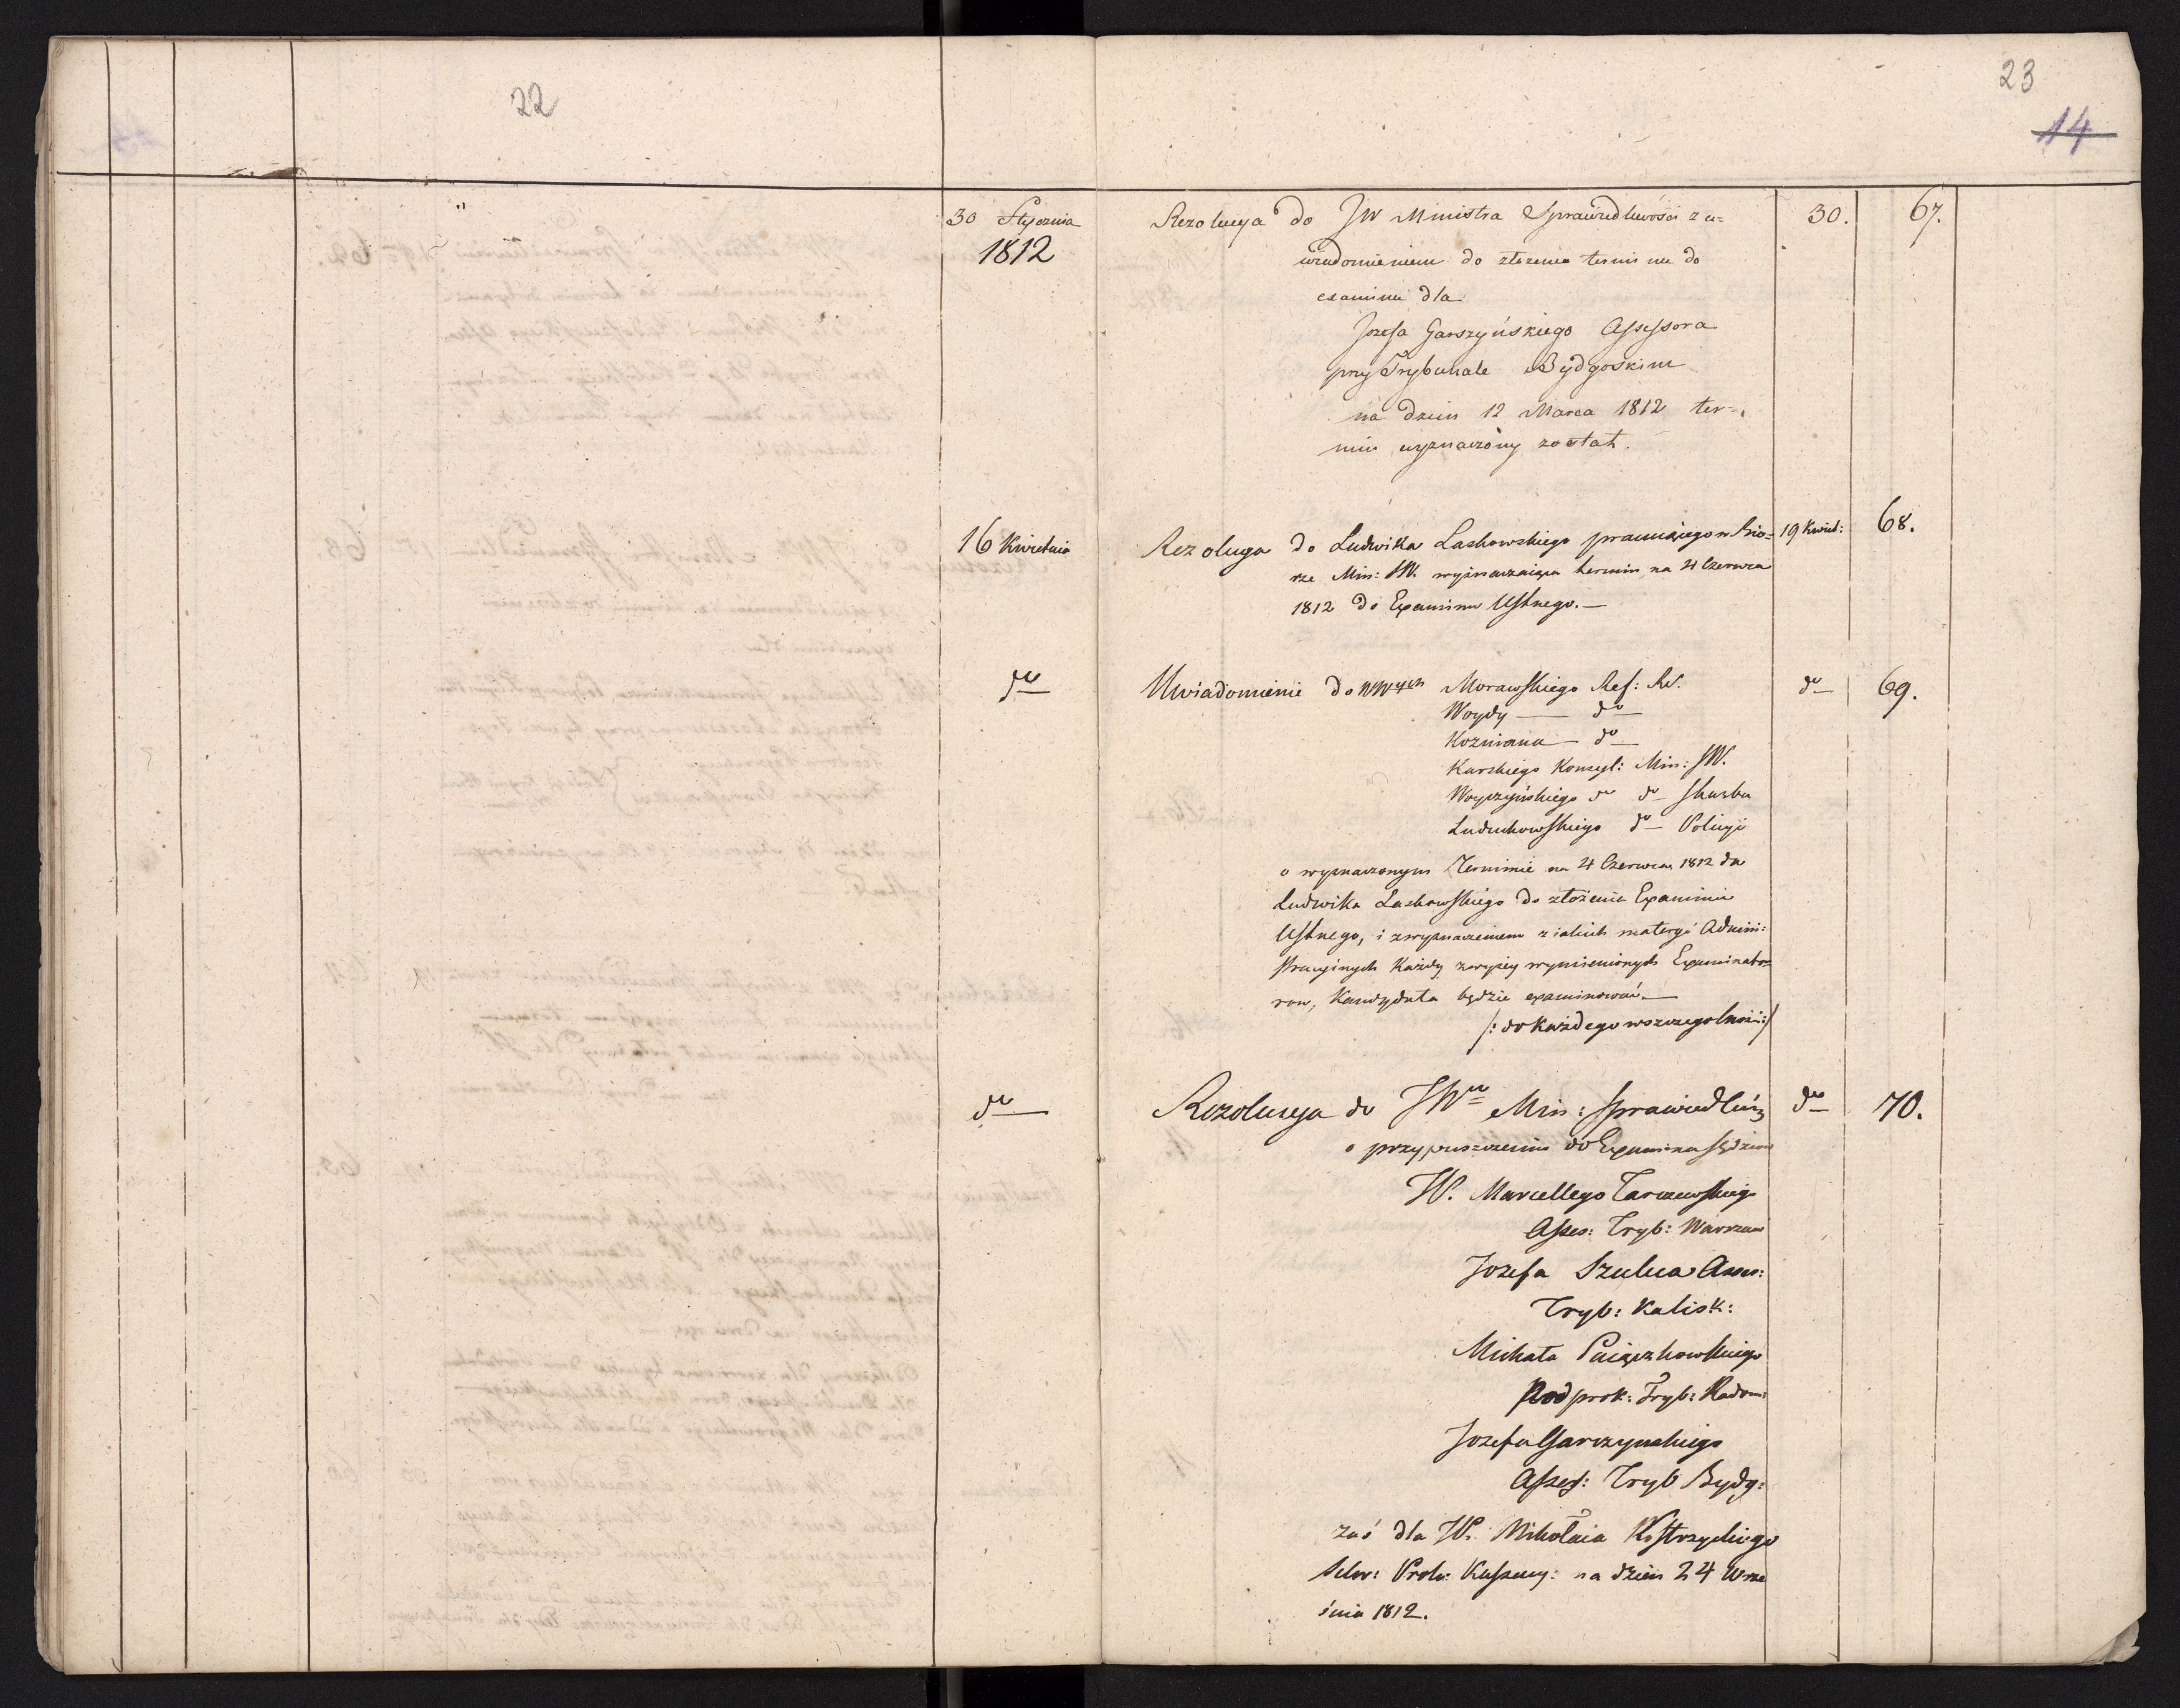 22
23
14
30 Stycznia
1812
Rezolucya do JW Ministra Sprawiedliwości z u=
wiadomieniem do złożenia terminu do
examinu dla
Jozefa Garszyńskiego Assessora
przy Trybunale Bydgoskim
na dzień 12 Marca 1812 ter=
min wyznaczony został.
30.
67.
16 Kwietnia
Rezolucya do Ludwika Laskowskiego pracuiącego w Bió=
rze Min: SW. wyznaczaiąca termin na 4 Czerwca
1812 do Examinu Ustnego.—
19 Kwiet:
68.
do
Uwiadomienie do WW Morawskiego Ref: St.
Woydy — do
Kozmiana — do
Karskiego Konsyl: Min: SW.
Woyczyńskiego do do Skarbu
Luduchowskiego do Policyi
o wyznaczonym Terminie na 4 Czerwca 1812 dla
Ludwika Laskowskiego do złożenia Examinu
Ustnego, i z wyznaczeniem z iakich materyi Admini:
stracyinych Każdy z wyżey wymienionych Examinato=
row, Kandydata będzie examinować.—
/: do każdego w szczegolności :/
do
69.
do
Rezolucya do JWo Min: Sprawiedliw:
o przypuszczeniu do Examinu Sędziow
W. Marcellego Tarczewskiego
Asses: Tryb: Warszaw
Jozefa Szulca Asses:
Tryb: Kalisk:
Michała Paiączkowskiego
Podprok: Tryb: Radom:
Jozefa Garczynskiego
Asses: Tryb Bydg:
zaś dla W. Mikołaia Kostrzyckiego
Prok: Kassacy: na dzień 24 Wrze
śnia 1812.
do
70.